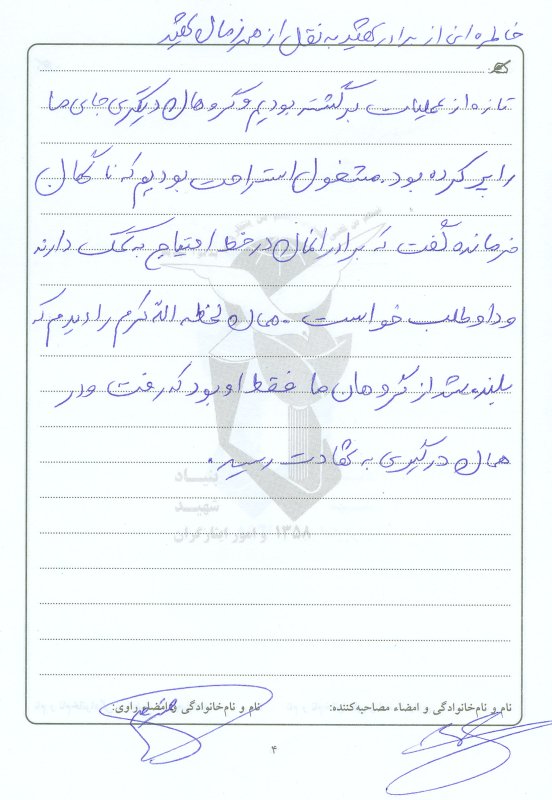 خاطره ای از برادر شهید به نقل از همرزمان شهید
تازه از عملیات برگشته بودیم و گروهان دیگری جای ما
را پر کرده بود. مشغول استراحت بودیم که ناگهان
فرمانده گفت که برادرانمان در خط احتیاج به کمک دارند
و داوطلب خواست. همان لحظه الله کرم را دیدم که
بلند شد از گروهان ما فقط او بود که رفت و در
همان درگیری به شهادت رسید.
بنیاد
شهید
و امور ایثارگران ۱۳۵۸
نام و نام‌خانوادگی و امضاء مصاحبه‌کننده: نام و نام‌خانوادگی و امضاء راوی:
۴